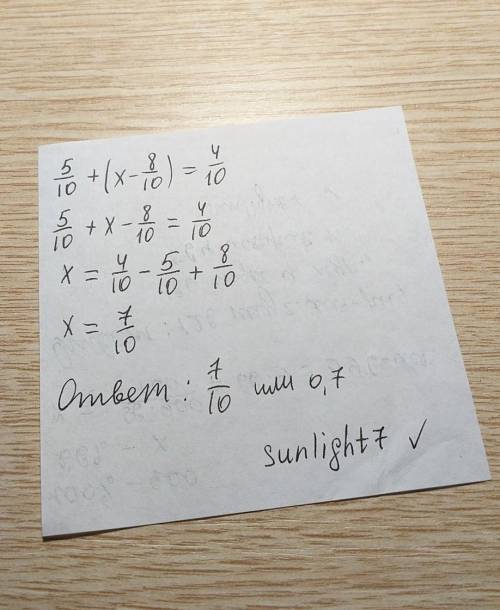 5/10 + (x - 8/10) = 4/10
5/10 + x - 8/10 = 4/10
x = 4/10 - 5/10 + 8/10
x = 7/10
Ответ: 7/10 или 0,7
sunlight7 ✓